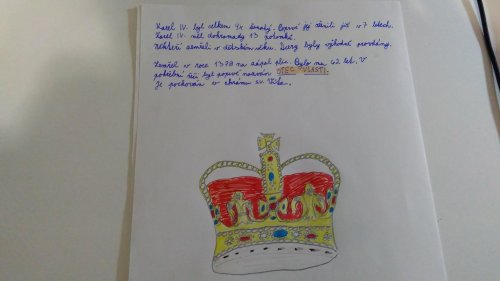 Karel IV. byl celkem 4x ženatý. Poprvé jej ženili již v 7 letech.
Karel IV. měl dohromady 13 potomků.
Někteří zemřeli v dětském věku. Dcery byly výhodně provdány.
Zemřel v roce 1378 na zápal plic. Bylo mu 62 let. V
pohřební řeči byl poprvé nazván OTEC VLASTI.
Je pochován v chrámu sv. Víta.